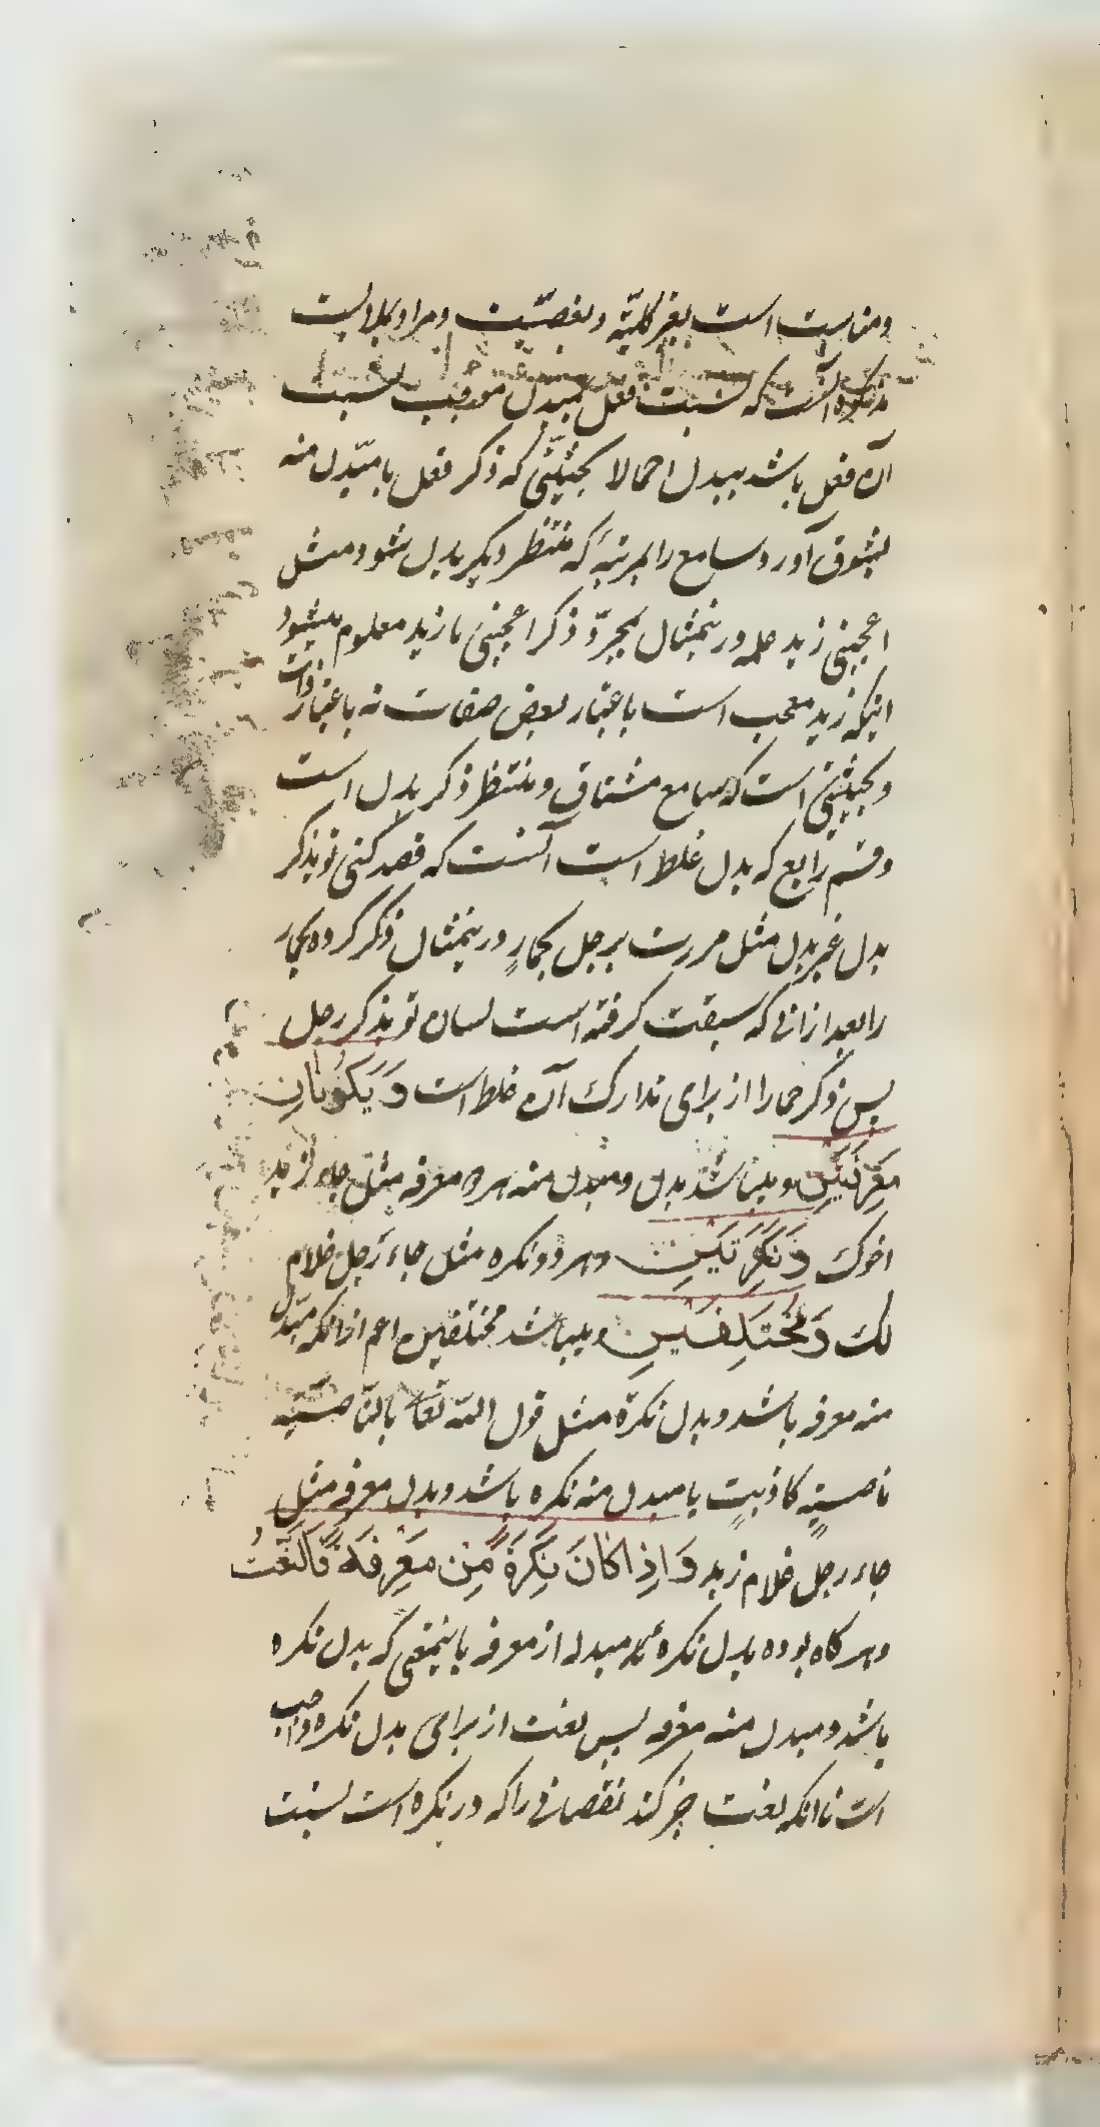 ومناسبت است بغیر کلیّه وبعضیّت ومراد بملابست
مذکوره آنست که نسبت فعل بمبدل موجب نسبت
آن فعل باشد ببدل اجمالا بحیثیّتی که ذکر فعل با مبدّل منه
بشوق آورد سامع را بمرتبهٔ که منتظر دیگر بدل شود مثل
اعجبنی زید علمه درینمثال بمجرّد ذکر اعجبنی با زید معلوم میشود
اینکه زید معجب است باعتبار بعض صفات نه باعتبار ذات
وبحیثیّتی است که سامع مشتاق ومنتظر ذکر بدل است
وقسم رابع که بدل غلط است آنست که قصد کنی تو بذکر
بدل غیر بدل مثل مررت برجل بحمارٍ درینمثال ذکر کرده بحمار
را بعد از انی که سبقت گرفته است لسان تو بذکر رجل
پس ذکر حمار را از برای تدارک آن غلط است وَ یَکُونَانِ
مَعْرِفَتَیْنِ و میباشد بدل ومبدل منه هر دو معرفه مثل جاء زید
اخوک وَ نَکِرَتَیْنِ وهر دو نکره مثل جاء رَجل غلام
لک وَ مُخْتَلِفَیْنِ ومیباشد مختلفین اعم از انکه مبدّل
منه معرفه باشد وبدل نکرة مثل قول اللّه تعا بالنّاصیَتِه
ناصیةٍ کاذبةٍ یا مبدل منه نکره باشد وبدل معرفه مثل
جاء رجل غلام زید وَ اِذَا کَانَ نَکِرَةً مِنْ مَعْرِفَةٍ فَالنَّعْتُ
وهر گاه بوده بدل نکره که مبدله از معرفه باینمعنی که بدل نکره
باشد ومبدل منه معرفه پس نعت از برای بدل نکره واجب
است تا انکه نعت جبر کند نقصانی را که در نکره است نسبت